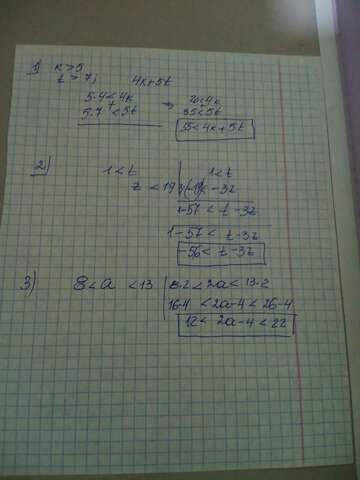 1) k > 5
t > 7; 4k+5t
5·4 < 4k → 20 < 4k
5·7 < 5t 35 < 5t
55 < 4k + 5t
2) 1 < t 1 < t
z < 19
1-57 < t - 3z
1 - 57 < t - 3z
-56 < t - 3z
3) 8 < a < 13 8·2 < 2a < 13·2
16-4 < 2a-4 < 26-4
12 < 2a-4 < 22